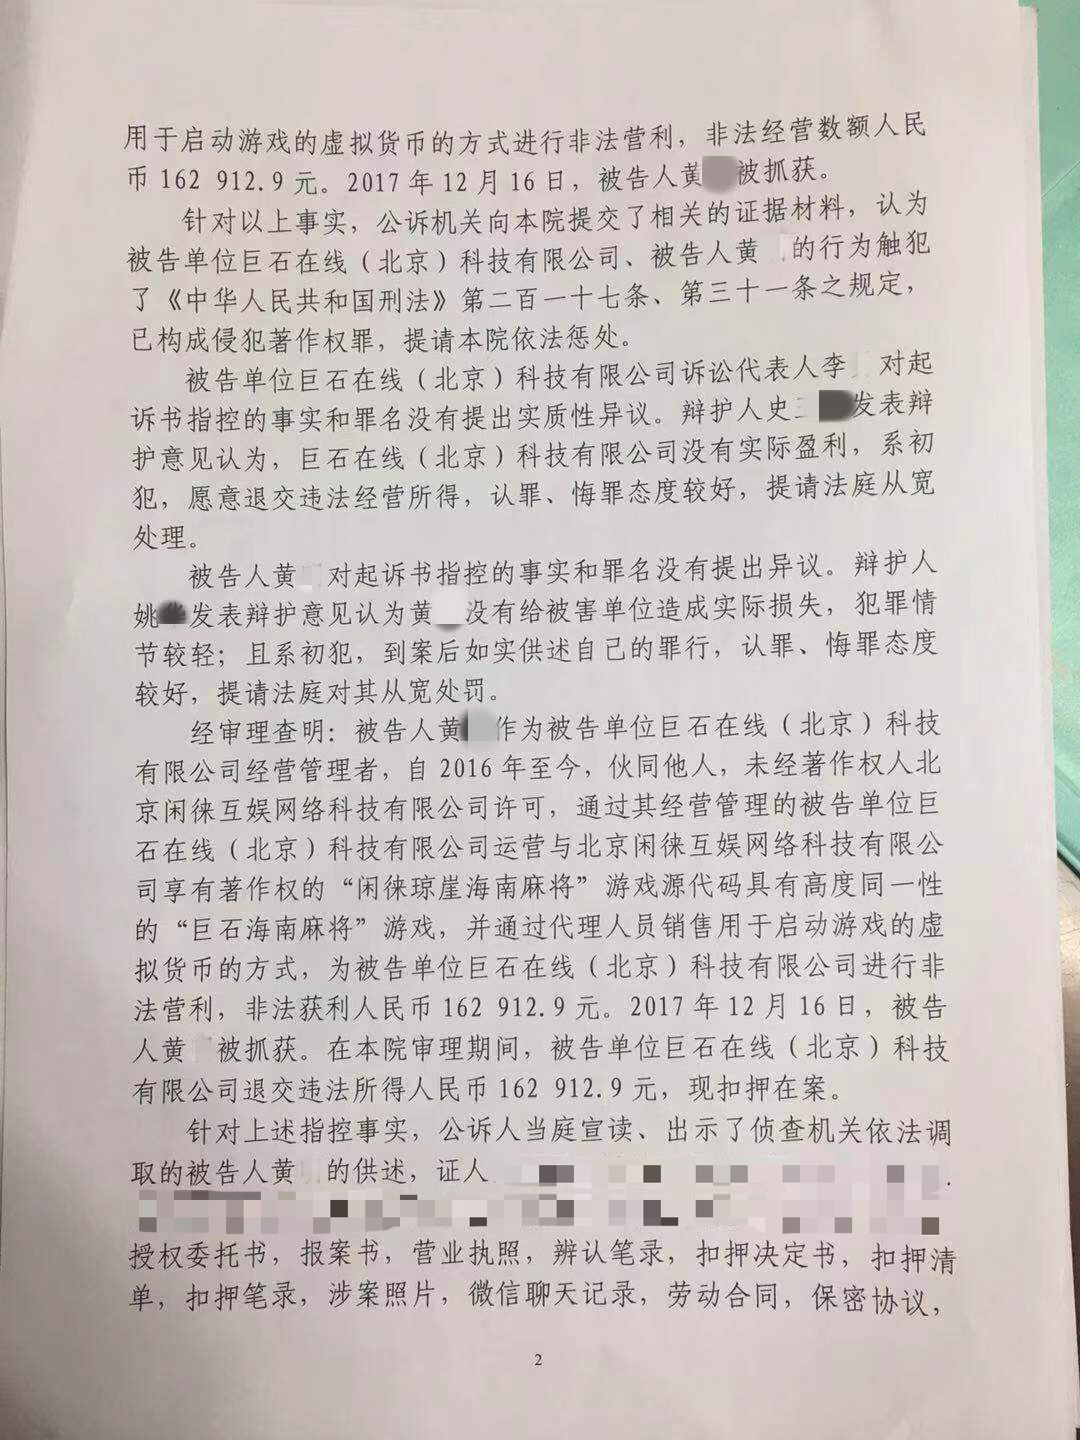 用于启动游戏的虚拟货币的方式进行非法营利，非法经营数额人民
币 162 912.9 元。2017 年 12 月 16 日，被告人黄被抓获。
针对以上事实，公诉机关向本院提交了相关的证据材料，认为
被告单位巨石在线（北京）科技有限公司、被告人黄的行为触犯
了《中华人民共和国刑法》第二百一十七条、第三十一条之规定，
已构成侵犯著作权罪，提请本院依法惩处。
被告单位巨石在线（北京）科技有限公司诉讼代表人李对起
诉书指控的事实和罪名没有提出实质性异议。辩护人史发表辩
护意见认为，巨石在线（北京）科技有限公司没有实际盈利，系初
犯，愿意退交违法经营所得，认罪、悔罪态度较好，提请法庭从宽
处理。
被告人黄对起诉书指控的事实和罪名没有提出异议。辩护人
姚发表辩护意见认为黄没有给被害单位造成实际损失，犯罪情
节较轻；且系初犯，到案后如实供述自己的罪行，认罪、悔罪态度
较好，提请法庭对其从宽处罚。
经审理查明：被告人黄作为被告单位巨石在线（北京）科技
有限公司经营管理者，自 2016 年至今，伙同他人，未经著作权人北
京闲徕互娱网络科技有限公司许可，通过其经营管理的被告单位巨
石在线（北京）科技有限公司运营与北京闲徕互娱网络科技有限公
司享有著作权的“闲徕琼崖海南麻将”游戏源代码具有高度同一性
的“巨石海南麻将”游戏，并通过代理人员销售用于启动游戏的虚
拟货币的方式，为被告单位巨石在线（北京）科技有限公司进行非
法营利，非法获利人民币 162 912.9 元。2017 年 12 月 16 日，被告
人黄被抓获。在本院审理期间，被告单位巨石在线（北京）科技
有限公司退交违法所得人民币 162 912.9 元，现扣押在案。
针对上述指控事实，公诉人当庭宣读、出示了侦查机关依法调
取的被告人黄的供述，证人
授权委托书，报案书，营业执照，辨认笔录，扣押决定书，扣押清
单，扣押笔录，涉案照片，微信聊天记录，劳动合同，保密协议，
2